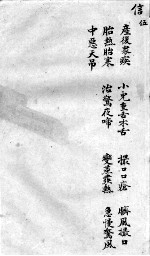 信伍
產後衆疾 小兒重舌木舌 撮口口瘡 臍風撮口
胎熱胎寒 治驚夜啼 變蒸發熱 急慢驚風
中惡天吊